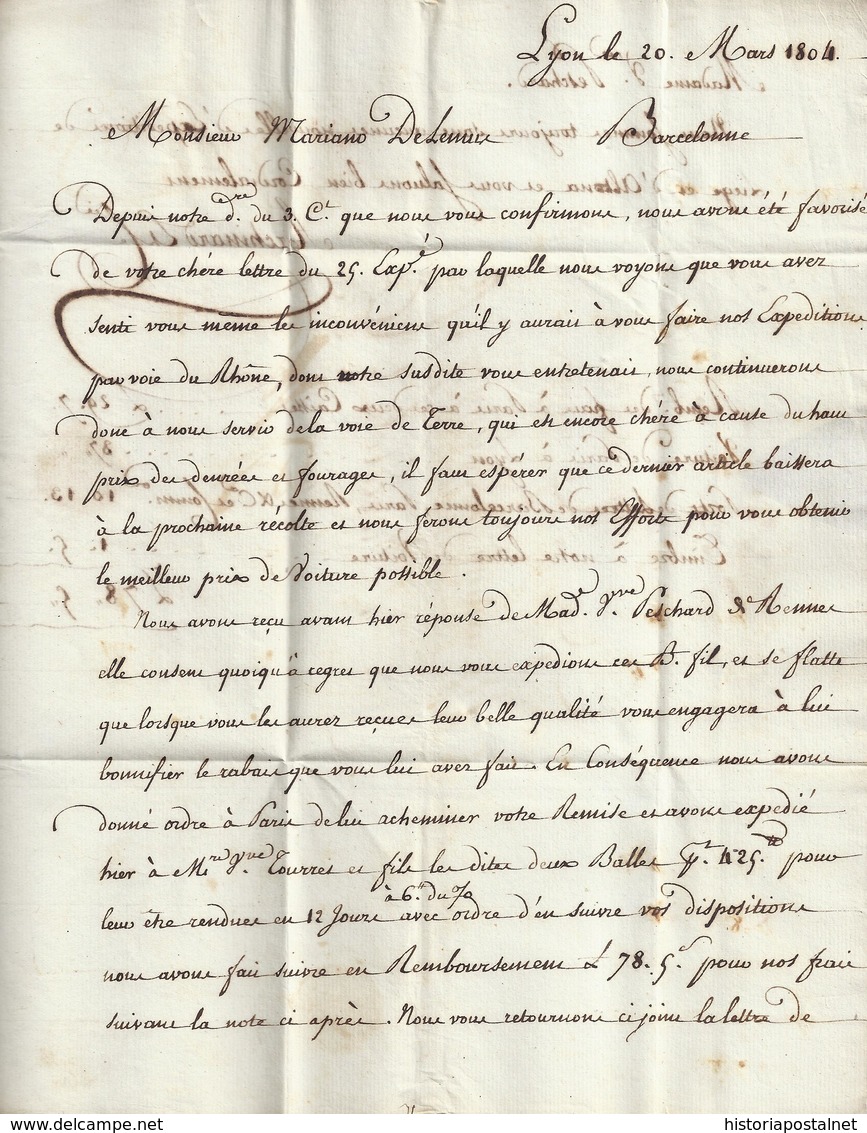 Lyon le 20. Mars 1804.
Monsieur Mariano Delemus Barcelonne
Depuis notre d.re du 3. C.t que nous vous confirmons, nous avons été favorisé
de votre chére lettre du 25. Exp.é par laquelle nous voyons que vous avez
senti vous même les inconvéniens qu'il y aurait à vous faire nos Expeditions
par voie du Rhône, dont notre susdite vous entretenait, nous continuerons
donc à nous servir de la voie de Terre, qui est encore chére à cause du haut
prix des denrées et fourages, il faut espérer que ce dernier article baissera
à la prochaine récolte et nous ferons toujours nos Efforts pour vous obtenir
le meilleur prix de Voiture possible.
Nous avons reçu avant hier réponse de Mad.e V.ve Peschard de Rennes
elle consent quoiqu'à regret que nous vous expedions ces B. fil, et se flatte
que lorsque vous les aurez reçues leur belle qualité vous engagera à lui
bonnifier le rabais que vous lui avez fait. En Conséquence nous avons
donné ordre à Paris de lui acheminer votre Remise et avons expedié
hier à M.re V.ve Tourres et fils les dites deux Balles p.t 425.lb pour
à 6.lt du %
leur être rendues en 12 Jours avec ordre d'en suivre vos dispositions
nous avons fait suivre en Remboursement £ 78. 5.s pour nos frais
suivant la note ci après. Nous vous retournons ci joint la lettre de
historiapostalnet